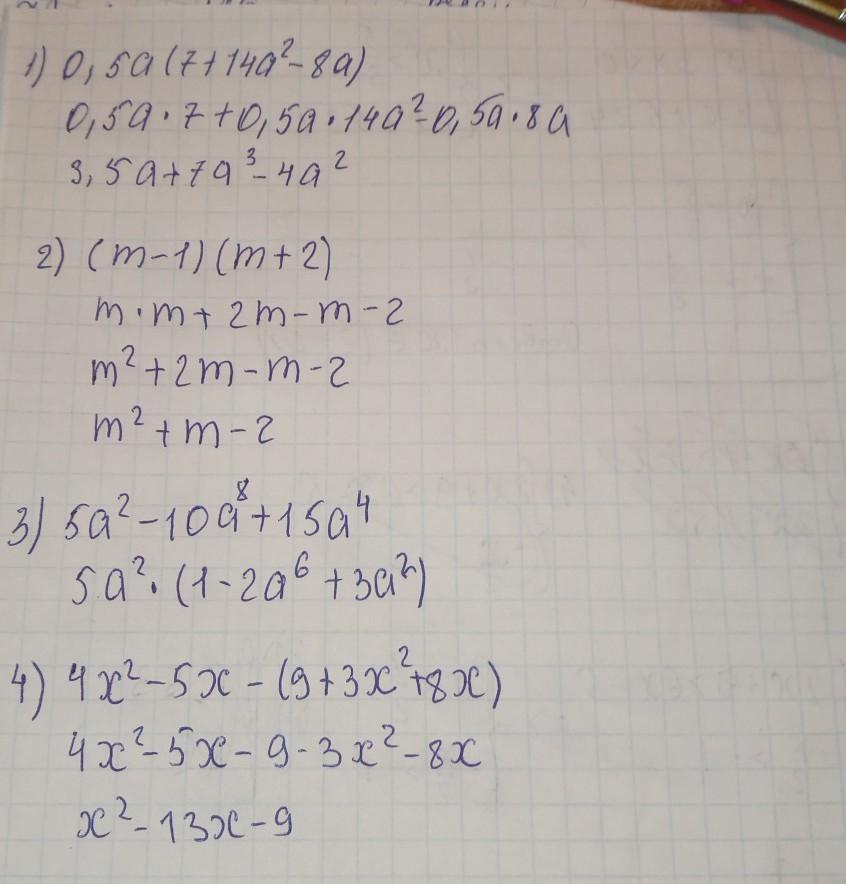 1) 0,5a(7+14a²-8a)
0,5a·7+0,5a·14a²-0,5a·8a
3,5a+7a³-4a²
2) (m-1)(m+2)
m·m+2m-m-2
m²+2m-m-2
m²+m-2
3) 5a²-10a⁸+15a⁴
5a²·(1-2a⁶+3a²)
4) 4x²-5x-(9+3x²+8x)
4x²-5x-9-3x²-8x
x²-13x-9